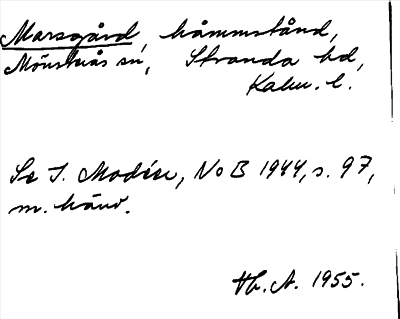 Marsgård, håmmstånd,
Mönsterås sn, Stranda hd,
Kalm. l.
Se I. Modéer, NoB 1944, s. 97,
m. hänv.
Hb. A. 1955.